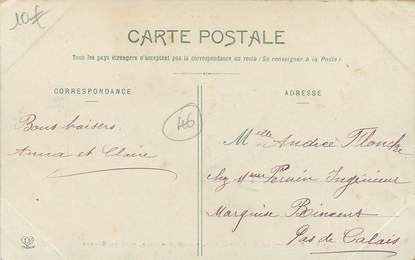 10€
CARTE POSTALE
Tous les pays étrangers n'acceptent pas la correspondance au recto (Se renseigner à la Poste)
CORRESPONDANCE
ADRESSE
46
Bons baisers.
Anna et Claire
Melle Andrée
chez Mme Ingénieur
Marquise
Pas de Calais